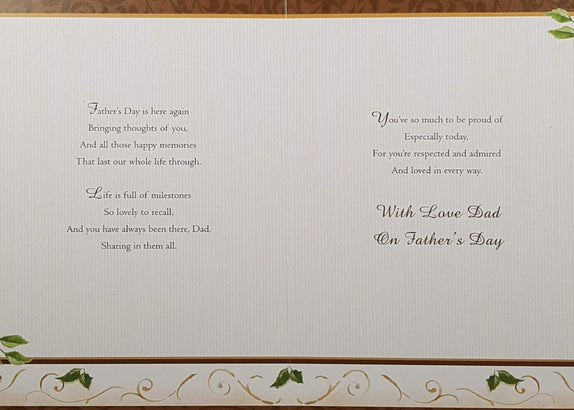 Father's Day is here again
Bringing thoughts of you,
And all those happy memories
That last our whole life through.
Life is full of milestones
So lovely to recall,
And you have always been there, Dad,
Sharing in them all.
You've so much to be proud of
Especially today,
For you're respected and admired
And loved in every way.
With Love Dad
On Father's Day